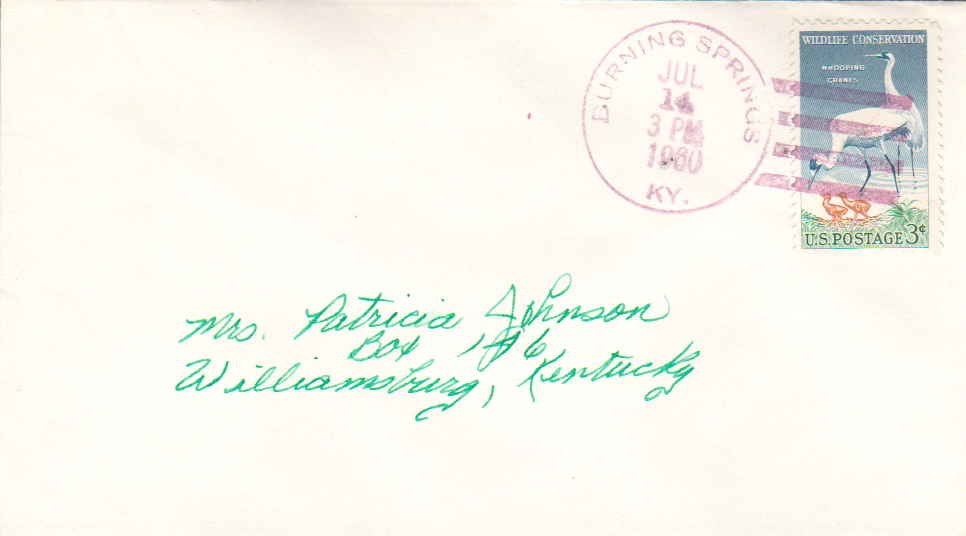 BURNING SPRINGS
JUL
14
3 PM
1960
KY.
WILDLIFE CONSERVATION
WHOOPING
CRANES
U.S. POSTAGE 3¢
Mrs. Patricia Johnson
Box
Williamsburg, Kentucky